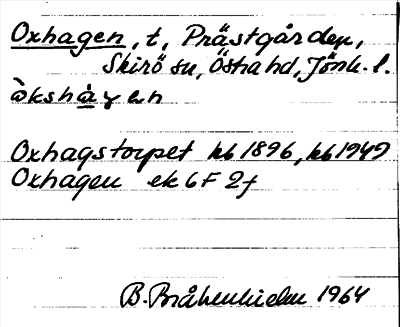 Oxhagen, t, Prästgården,
Skirö sn, Östra hd, Jönk. l.
òkshà̱γen
Oxhagstorpet kb 1896, kb 1949
Oxhagen ek 6F 2f
B. 1964